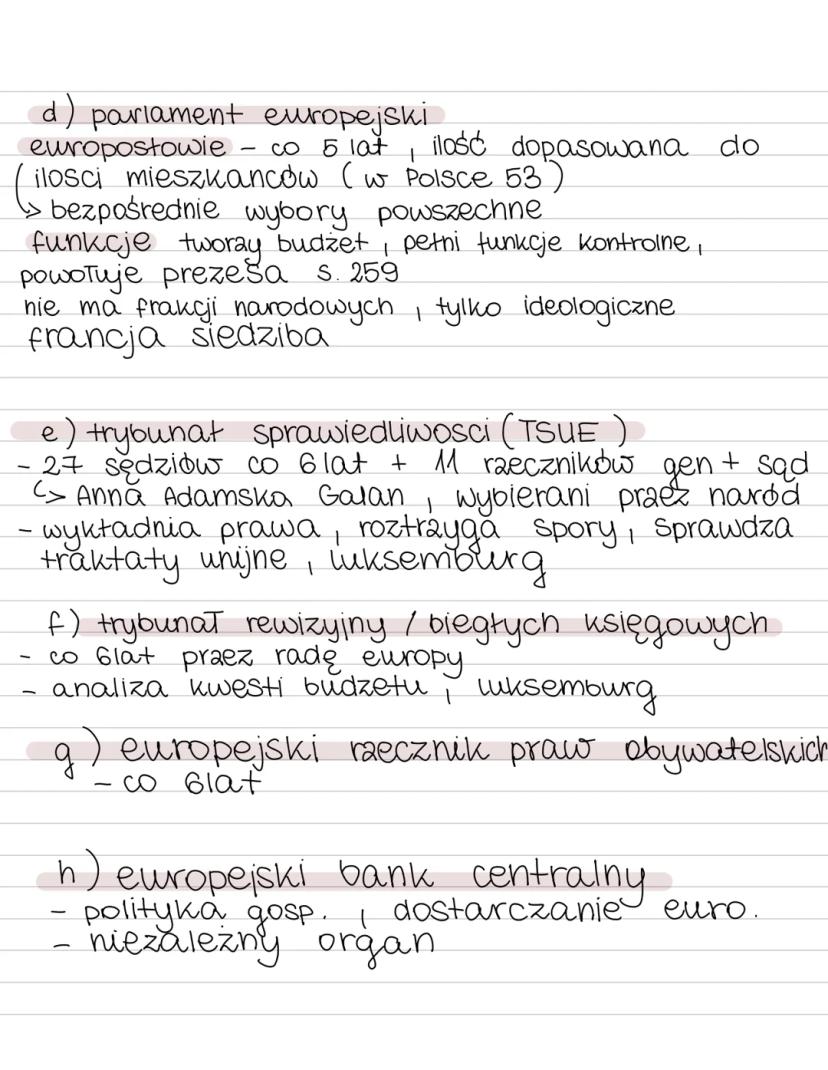 d) parlament europejski
europosłowie – co 5 lat, ilość dopasowana do
ilosci mieszkanców (w Polsce 53)
↳ bezpośrednie wybory powszechne
funkcje tworzy budżet, pełni funkcje kontrolne,
powołuje prezesa s. 259
nie ma frakcji narodowych, tylko ideologiczne
francja siedziba
e) trybunał sprawiedliwosci (TSUE)
- 27 sędziów co 6 lat + 11 rzeczników gen + sąd
↳ Anna Adamska Galan, wybierani przez naród
- wykładnia prawa, roztrzyga spory, sprawdza
traktaty unijne, luksemburg
f) trybunał rewizyjny / biegłych księgowych
- co 6lat przez radę europy
- analiza kwesti budżetu, luksemburg
g) europejski rzecznik praw obywatelskich
- co 6lat
h) europejski bank centralny
- polityka gosp. , dostarczanie euro.
- niezależny organ